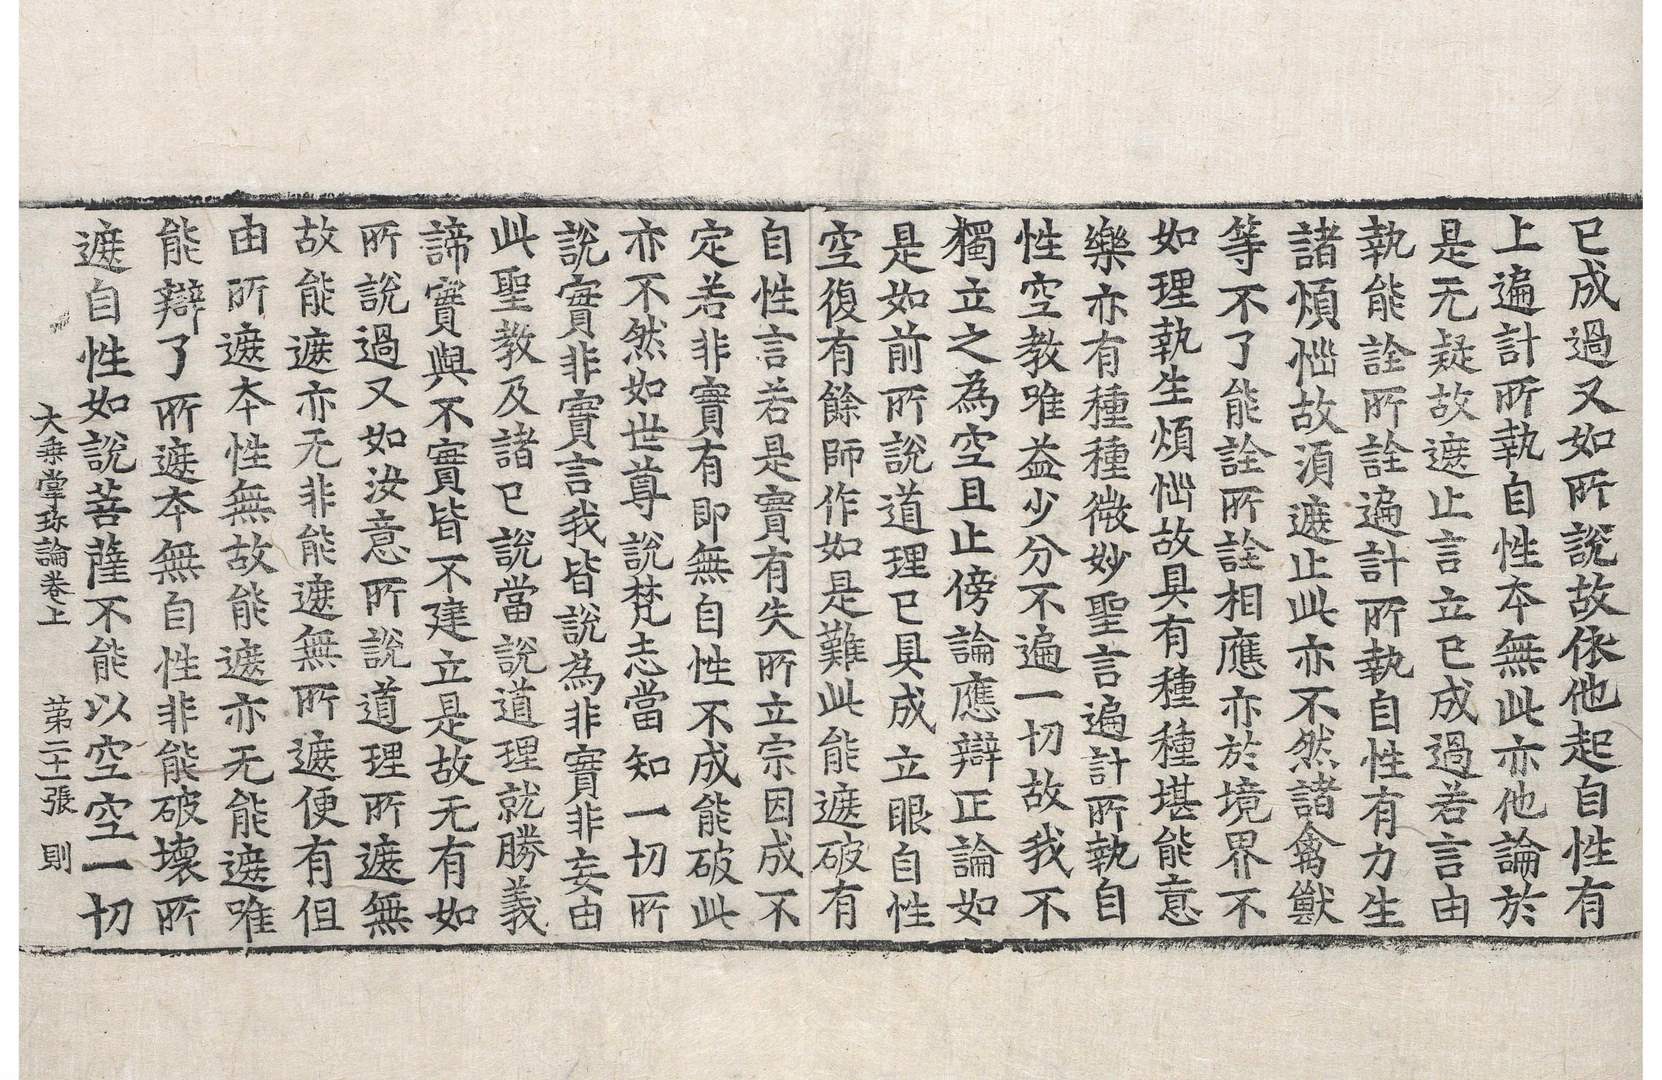 已成過又如所說故依他起自性有
上遍計所執自性本無此亦他論於
是无疑故遮止言立已成過若言由
執能詮所詮遍計所執自性有力生
諸煩惱故須遮止此亦不然諸禽獸
等不了能詮所詮相應亦於境界不
如理執生煩惱故具有種種堪能意
樂亦有種種微妙聖言遍計所執自
性空教唯益少分不遍一切故我不
獨立之為空且止傍論應辯正論如
是如前所說道理已具成立眼自性
空復有餘師作如是難此能遮破有
自性言若是實有失所立宗因成不
定若非實有即無自性不成能破此
亦不然如世尊說梵志當知一切所
說實非實言我皆說為非實非妄由
此聖教及諸已說當說道理就勝義
諦實與不實皆不建立是故无有如
所說過又如汝意所說道理所遮無
故能遮亦无非能遮無所遮便有但
由所遮本性無故能遮亦无能遮唯
能辯了所遮本無自性非能破壞所
遮自性如說菩薩不能以空空一切
大乘掌珍論卷上 第二十張 則